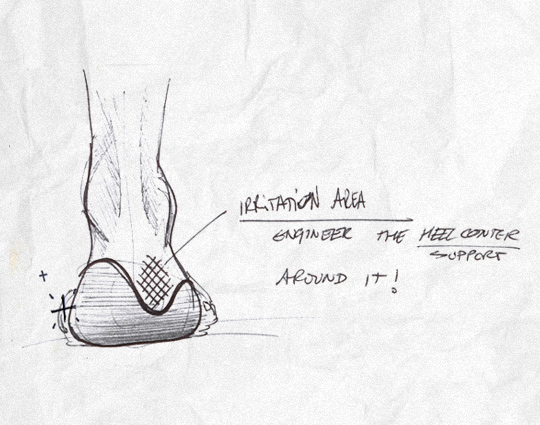 IRRITATION AREA
ENGINEER THE HEEL CONTER
SUPPORT
AROUND IT!